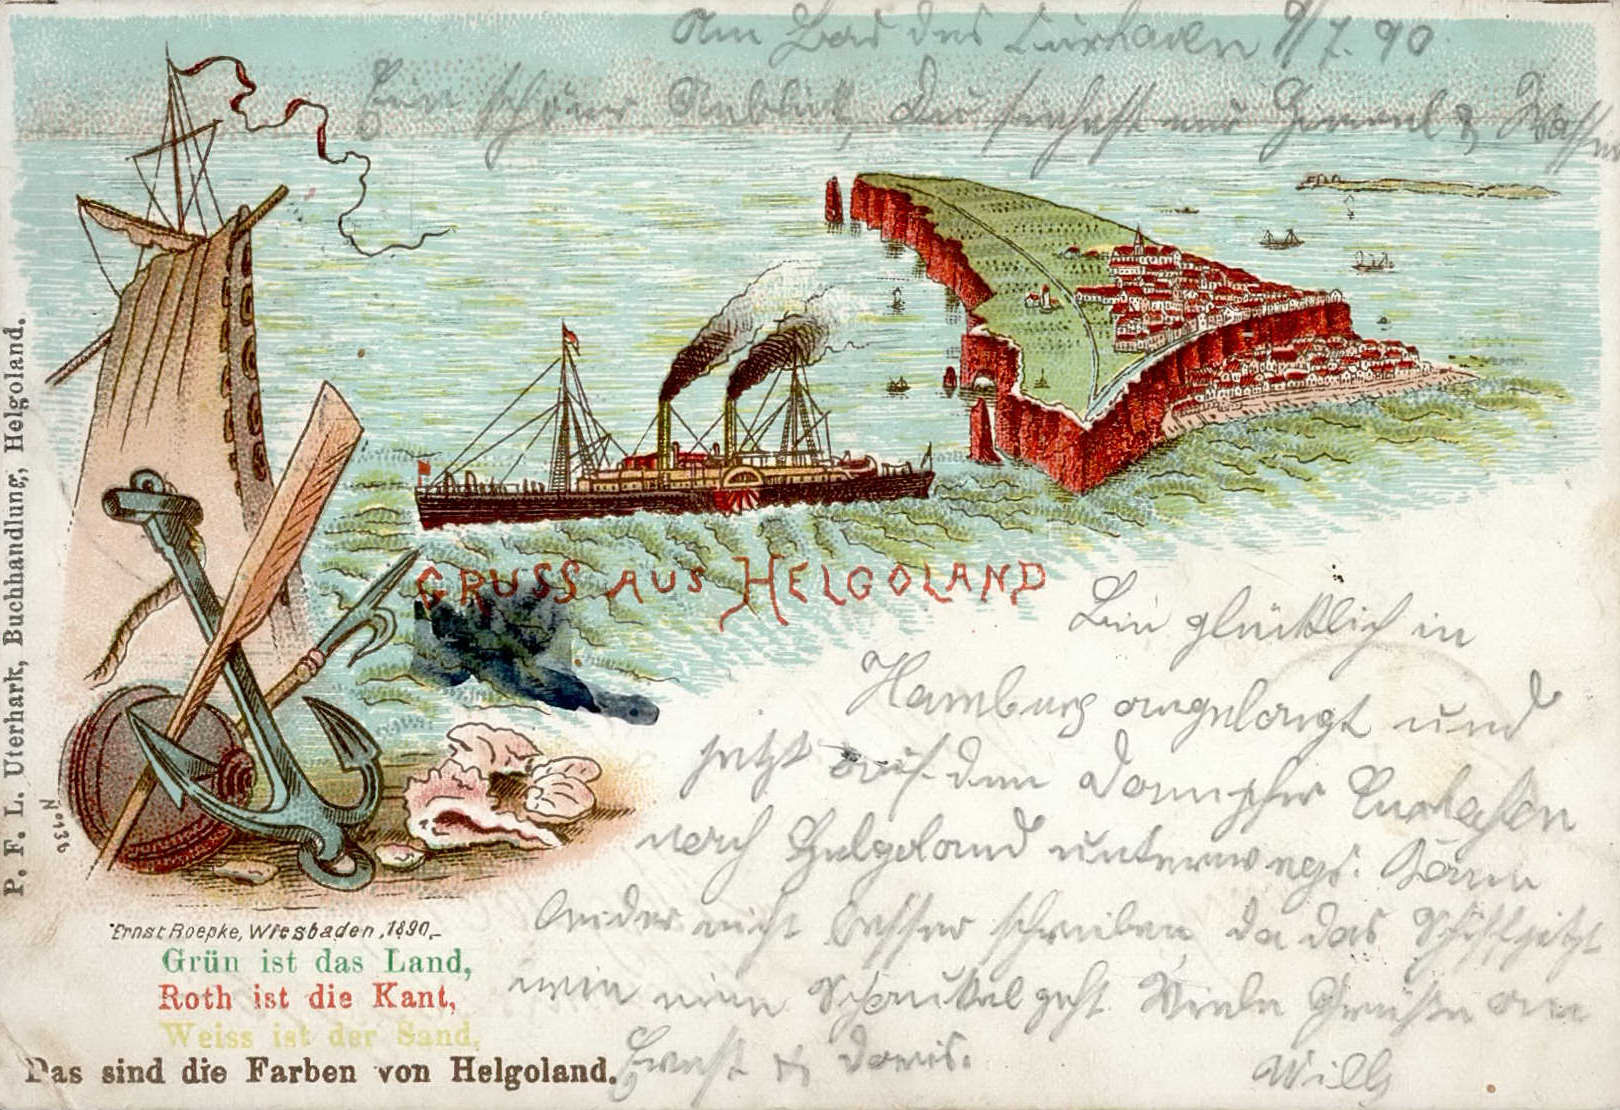 Am Bord des Cuxhaven 9/7. 90.
Ein schöner Anblick, Du siehst nur Himmel & Wasser
GRUSS AUS HELGOLAND
Bin glücklich in
Hamburg angelangt und
jetzt auf dem Dampfer Cuxhafen
nach Helgoland unterwegs. Kann
leider nicht besser schreiben, da das Schiff jetzt
wie eine Schaukel geht. Viele Grüße an
Ernst & Doris.
Willy
P. F. L. Uterhark, Buchhandlung, Helgoland.
No 136
Ernst Roepke, Wiesbaden, 1890.
Grün ist das Land,
Roth ist die Kant,
Weiss ist der Sand,
Das sind die Farben von Helgoland.